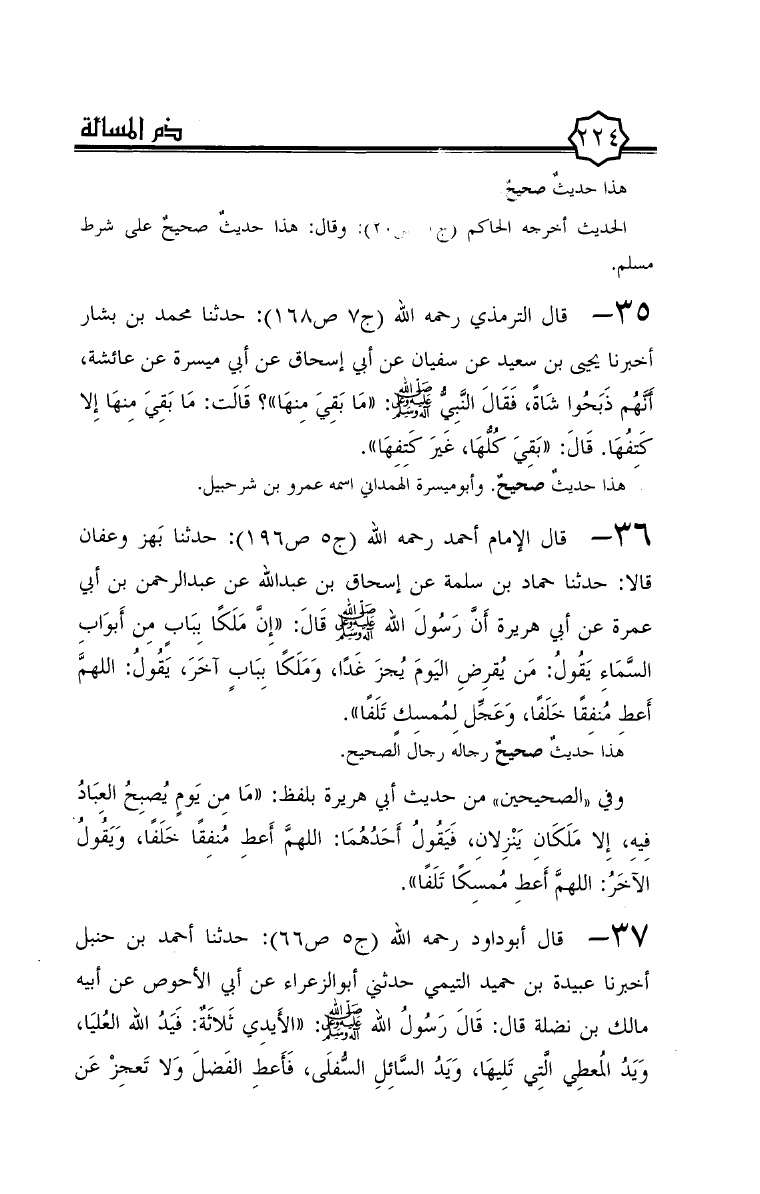 ذم المسألة
٢٢٤
هذا حديثٌ صحيحٌ
الحديث أخرجه الحاكم (ج ص٢٠): وقال: هذا حديثٌ صحيحٌ على شرط
مسلم.
٣٥– قال الترمذي رحمه الله (ج٧ ص١٦٨): حدثنا محمد بن بشار
أخبرنا يحيى بن سعيد عن سفيان عن أبي إسحاق عن أبي ميسرة عن عائشة،
أَنَّهُم ذَبَحُوا شَاةً، فَقَالَ النَّبِيُّ ﷺ: «مَا بَقِيَ مِنهَا»؟ قَالَت: مَا بَقِيَ مِنهَا إِلا
كَتِفُهَا. قَالَ: «بَقِيَ كُلُّهَا، غَيرَ كَتِفِهَا».
هذا حديثٌ صحيحٌ. وأبوميسرة الهمداني اسمه عمرو بن شرحبيل.
٣٦– قال الإمام أحمد رحمه الله (ج٥ ص١٩٦): حدثنا بَهز وعفان
قالا: حدثنا حماد بن سلمة عن إسحاق بن عبدالله عن عبدالرحمن بن أبي
عمرة عن أبي هريرة أَنَّ رَسُولَ الله ﷺ قَالَ: «إِنَّ مَلَكًا بِبَابٍ مِن أَبوَابِ
السَّمَاءِ يَقُولُ: مَن يُقرِضِ اليَومَ يُجزَ غَدًا، وَمَلَكًا بِبَابٍ آخَرَ، يَقُولُ: اللهمَّ
أَعطِ مُنفِقًا خَلَفًا، وَعَجِّل لِمُمسِكٍ تَلَفًا».
هذا حديثٌ صحيحٌ رجاله رجال الصحيح.
وفي «الصحيحين» من حديث أبي هريرة بلفظ: «مَا مِن يَومٍ يُصبِحُ العِبَادُ
فِيهِ، إِلا مَلَكَانِ يَنْزِلانِ، فَيَقُولُ أَحَدُهُمَا: اللهمَّ أَعطِ مُنفِقًا خَلَفًا، وَيَقُولُ
الآخَرُ: اللهمَّ أَعطِ مُمسِكًا تَلَفًا».
٣٧– قال أبوداود رحمه الله (ج٥ ص٦٦): حدثنا أحمد بن حنبل
أخبرنا عبيدة بن حميد التيمي حدثني أبوالزعراء عن أبي الأحوص عن أبيه
مالك بن نضلة قال: قَالَ رَسُولُ الله ﷺ: «الأَيدِي ثَلاثَةٌ: فَيَدُ الله العُليَا،
وَيَدُ المُعطِي الَّتِي تَلِيهَا، وَيَدُ السَّائِلِ السُّفلَى، فَأَعطِ الفَضلَ وَلا تَعجِزْ عَن